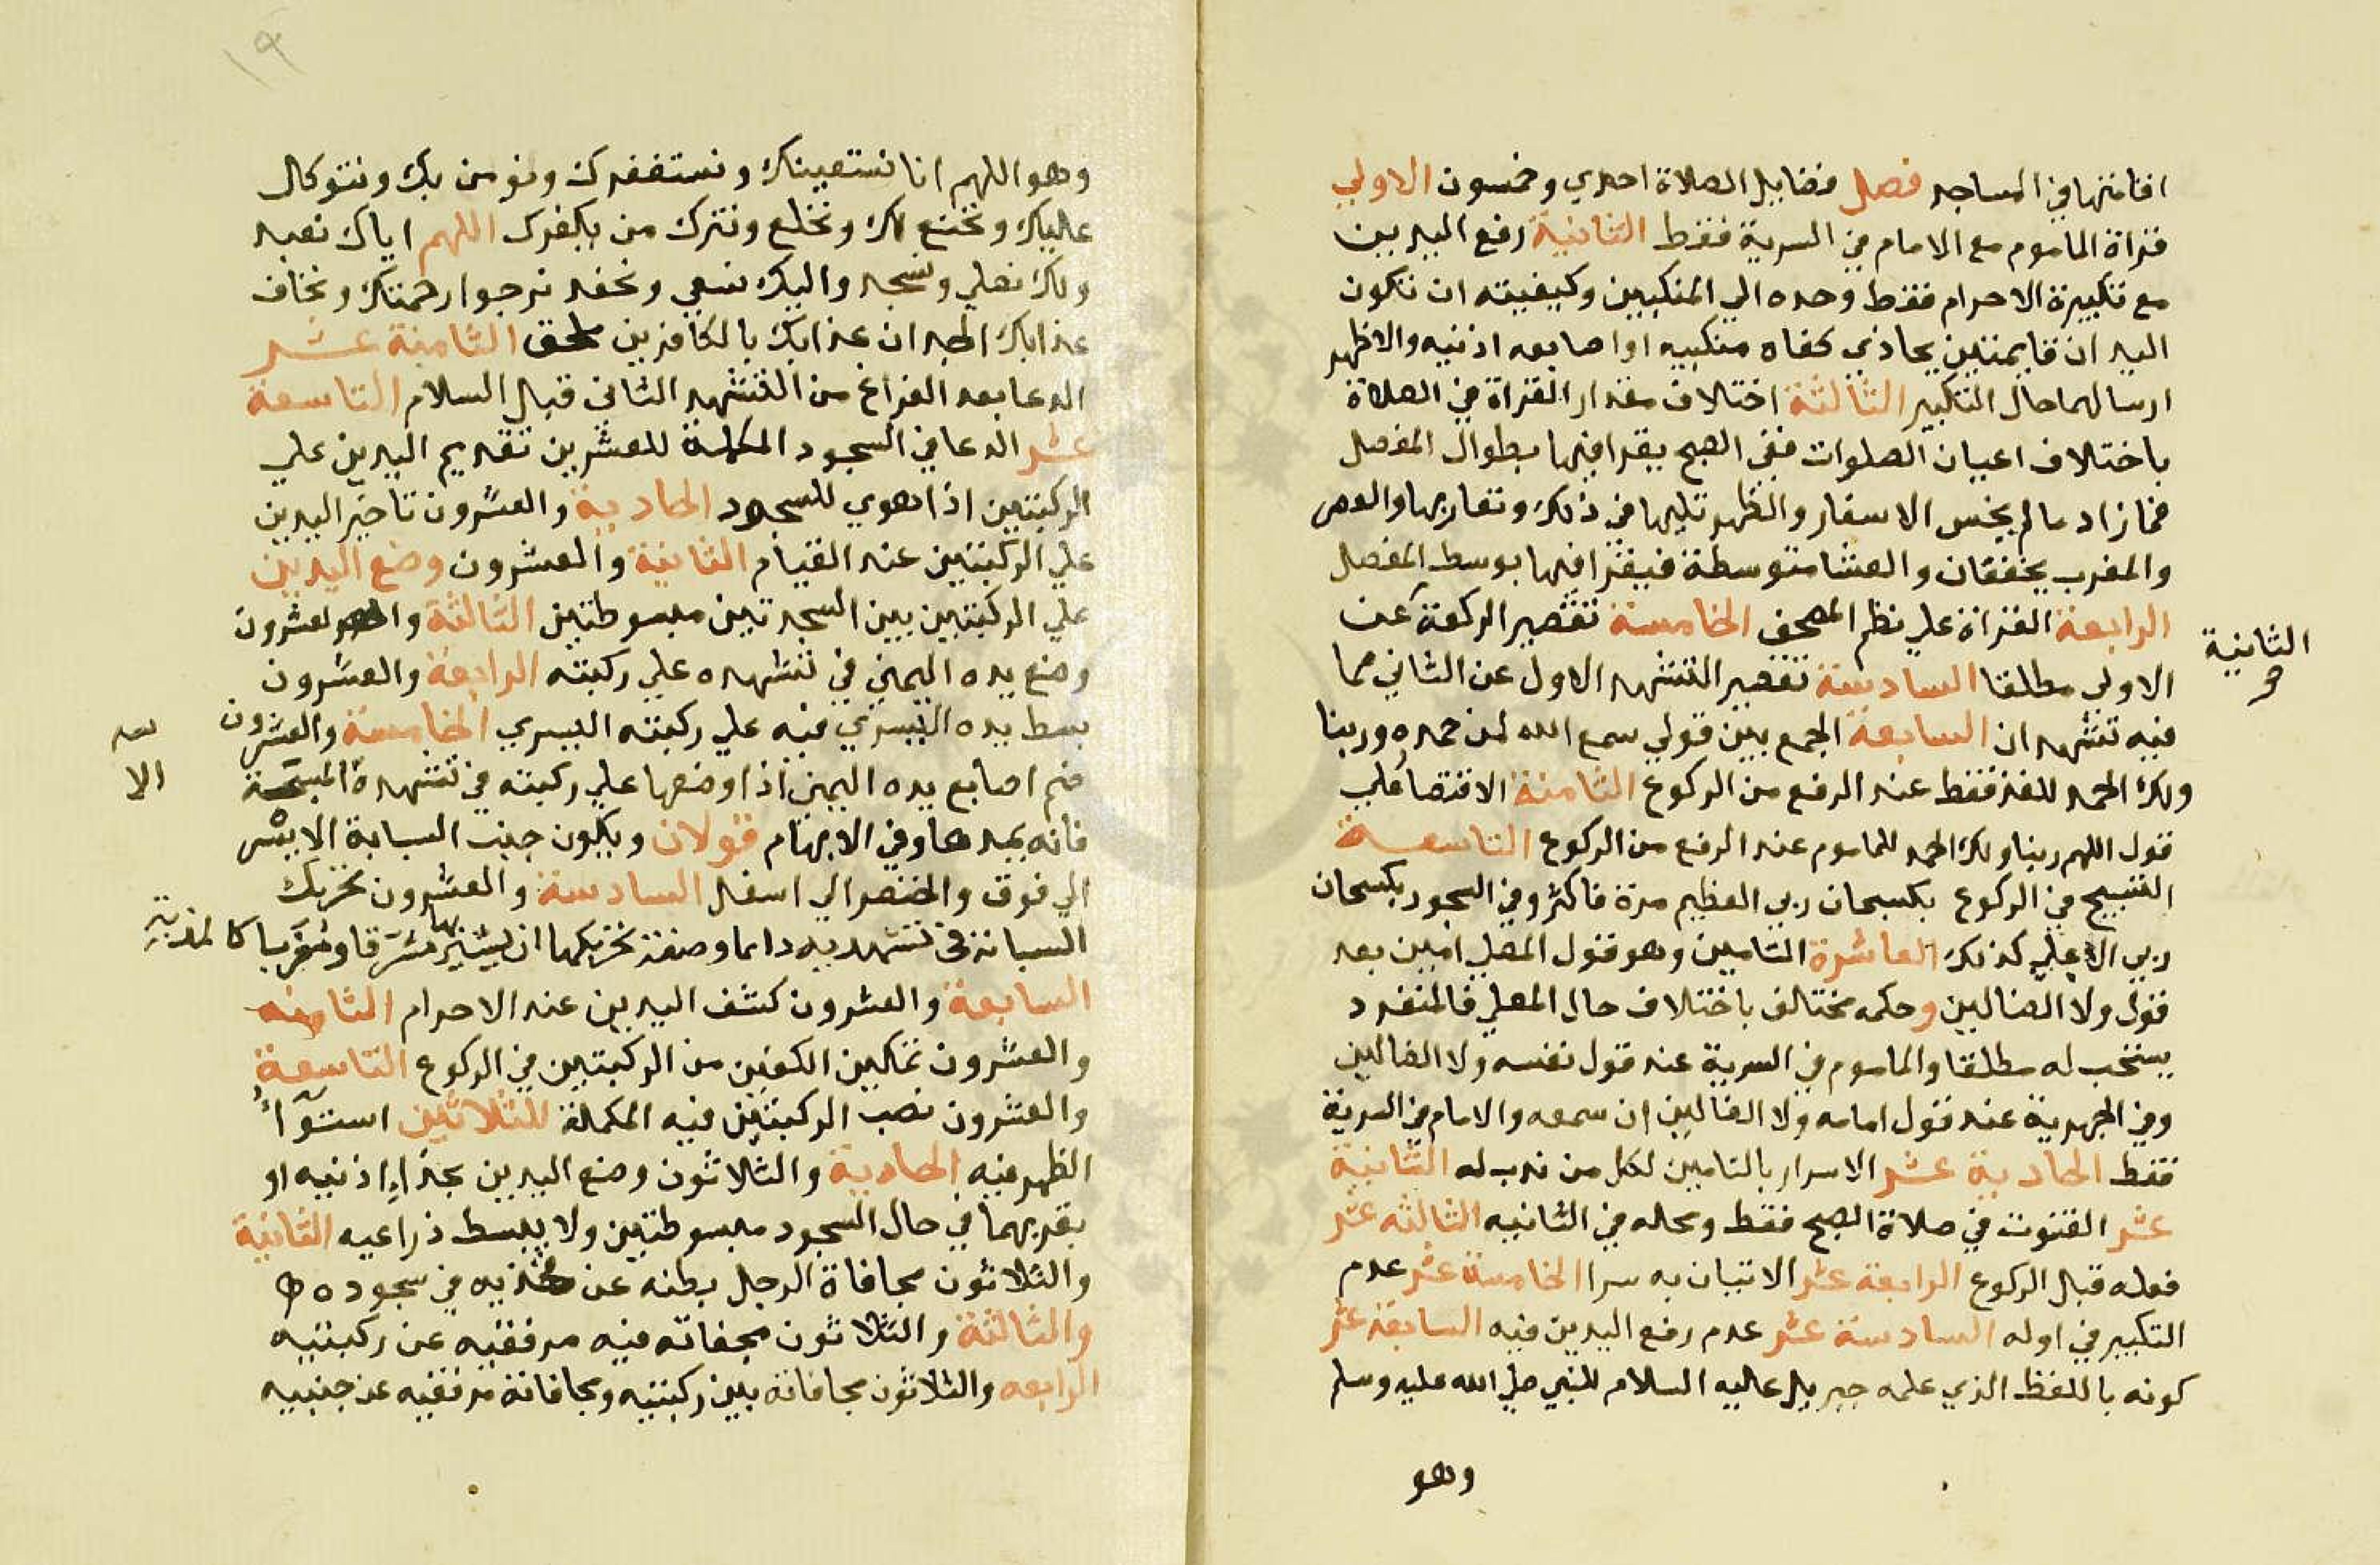 اقامتها في المساجد فصل فضايل الصلاة احدي وخمسون الاولي
قراة الماموم مع الامام في السرية فقط الثانية رفع اليدين
مع تكبيرة الاحرام فقط وحده الي المنكبين وكيفيته ان تكون
اليدان قايمتين يحاذي كفاه منكبيه او اصابعه اذنيه والاظهر
ارسالهما حال التكبير الثالثة اختلاف مقدار القراة في الصلاة
باختلاف اعيان الصلوات ففي الصبح يقرا فيها بطوال المفصل
فما زاد ما لم يخش الاسفار والظهر تليها في ذلك وتقاربها والعصر
والمغرب يخففان والعشا متوسطة فيقرا فيها بوسط المفصل
الرابعة القراة علي نظم المصحف الخامسة تقصير الركعة عن
الثانية
الاولي مطلقا السادسة تقصير التشهد الاول عن الثاني مما
فيه تشهدان السابعة الجمع بين قولي سمع الله لمن حمده وربنا
ولك الحمد للفذ فقط عند الرفع من الركوع الثامنة الاقتصار علي
قول اللهم ربنا ولك الحمد للماموم عند الرفع من الركوع التاسعة
التسبيح في الركوع بكسبحان ربي العظيم مرة فاكثر وفي السجود بكسبحان
ربي الاعلي كذلك العاشرة التامين وهو قول المصلي امين بعد
قول ولا الضالين وحكمه مختلف باختلاف حال المصلي فالمنفرد
يستحب له مطلقا والماموم في السرية عند قول نفسه ولا الضالين
وفي الجهرية عند قول امامه ولا الضالين ان سمعه والامام في السرية
فقط الحادية عشر الاسرار بالتامين لكل من ندب له الثانية
عشر القنوت في صلاة الصبح فقط ومحله في الثانيه الثالثه عشر
فعله قبل الركوع الرابعة عشر الاتيان به سرا الخامسة عشر عدم
التكبير في اوله السادسة عشر عدم رفع اليدين فيه السابعة عشر
كونه باللفظ الذي علمه جبريل عليه السلام للنبي صلي الله عليه وسلم
وهو
١٩
وهو اللهم انا نستعينك ونستغفرك ونومن بك ونتوكل
عليك ونخنع لك ونخلع ونترك من يكفرك اللهم اياك نعبد
ولك نصلي ونسجد واليك نسعي ونحفد نرجوا رحمتك ونخاف
عذابك الجد ان عذابك بالكافرين ملحق الثامنة عشر
الدعا بعد الفراغ من التشهد الثاني قبل السلام التاسعة
عشر الدعا في السجود المكملة للعشرين تقديم اليدين علي
الركبتين اذا هوي للسجود الحادية والعشرون تاخير اليدين
علي الركبتين عند القيام الثانية والعشرون وضع اليدين
علي الركبتين بين السجدتين مبسوطتين الثالثة والعشرون
وضع يده اليمني في تشهده علي ركبته الرابعة والعشرون
بسط يده اليسري فيه علي ركبته اليسري الخامسة والعشرون
ضم اصابع يده اليمني اذا وضعها علي ركبته في تشهده المسبحة
الا
فانه يمدها وفي الابهام قولان ويكون جنب السبابة الايسر
الي فوق والخنصر الي اسفل السادسة والعشرون تحريك
السبابة في تشهديه دايما وصفة تحريكها ان يشير بها مشرقا ومغربا كالمذبة
السابعة والعشرون كشف اليدين عند الاحرام الثامنه
والعشرون تمكين الكفين من الركبتين في الركوع التاسعة
والعشرون نصب الركبتين فيه المكملة للثلاثين استوآء
الظهر فيه الحادية والثلاثون وضع اليدين بحذاء اذنيه او
بقربهما في حال السجود مبسوطتين ولا يبسط ذراعيه الثانية
والثلاثون مجافاة الرجل بطنه عن فخذيه في سجوده
والثالثة والثلاثون مجفاته فيه مرفقيه عن ركبتيه
الرابعه والثلاثون مجافاته بين ركبتيه ومجافاته مرفقيه عن جنبيه